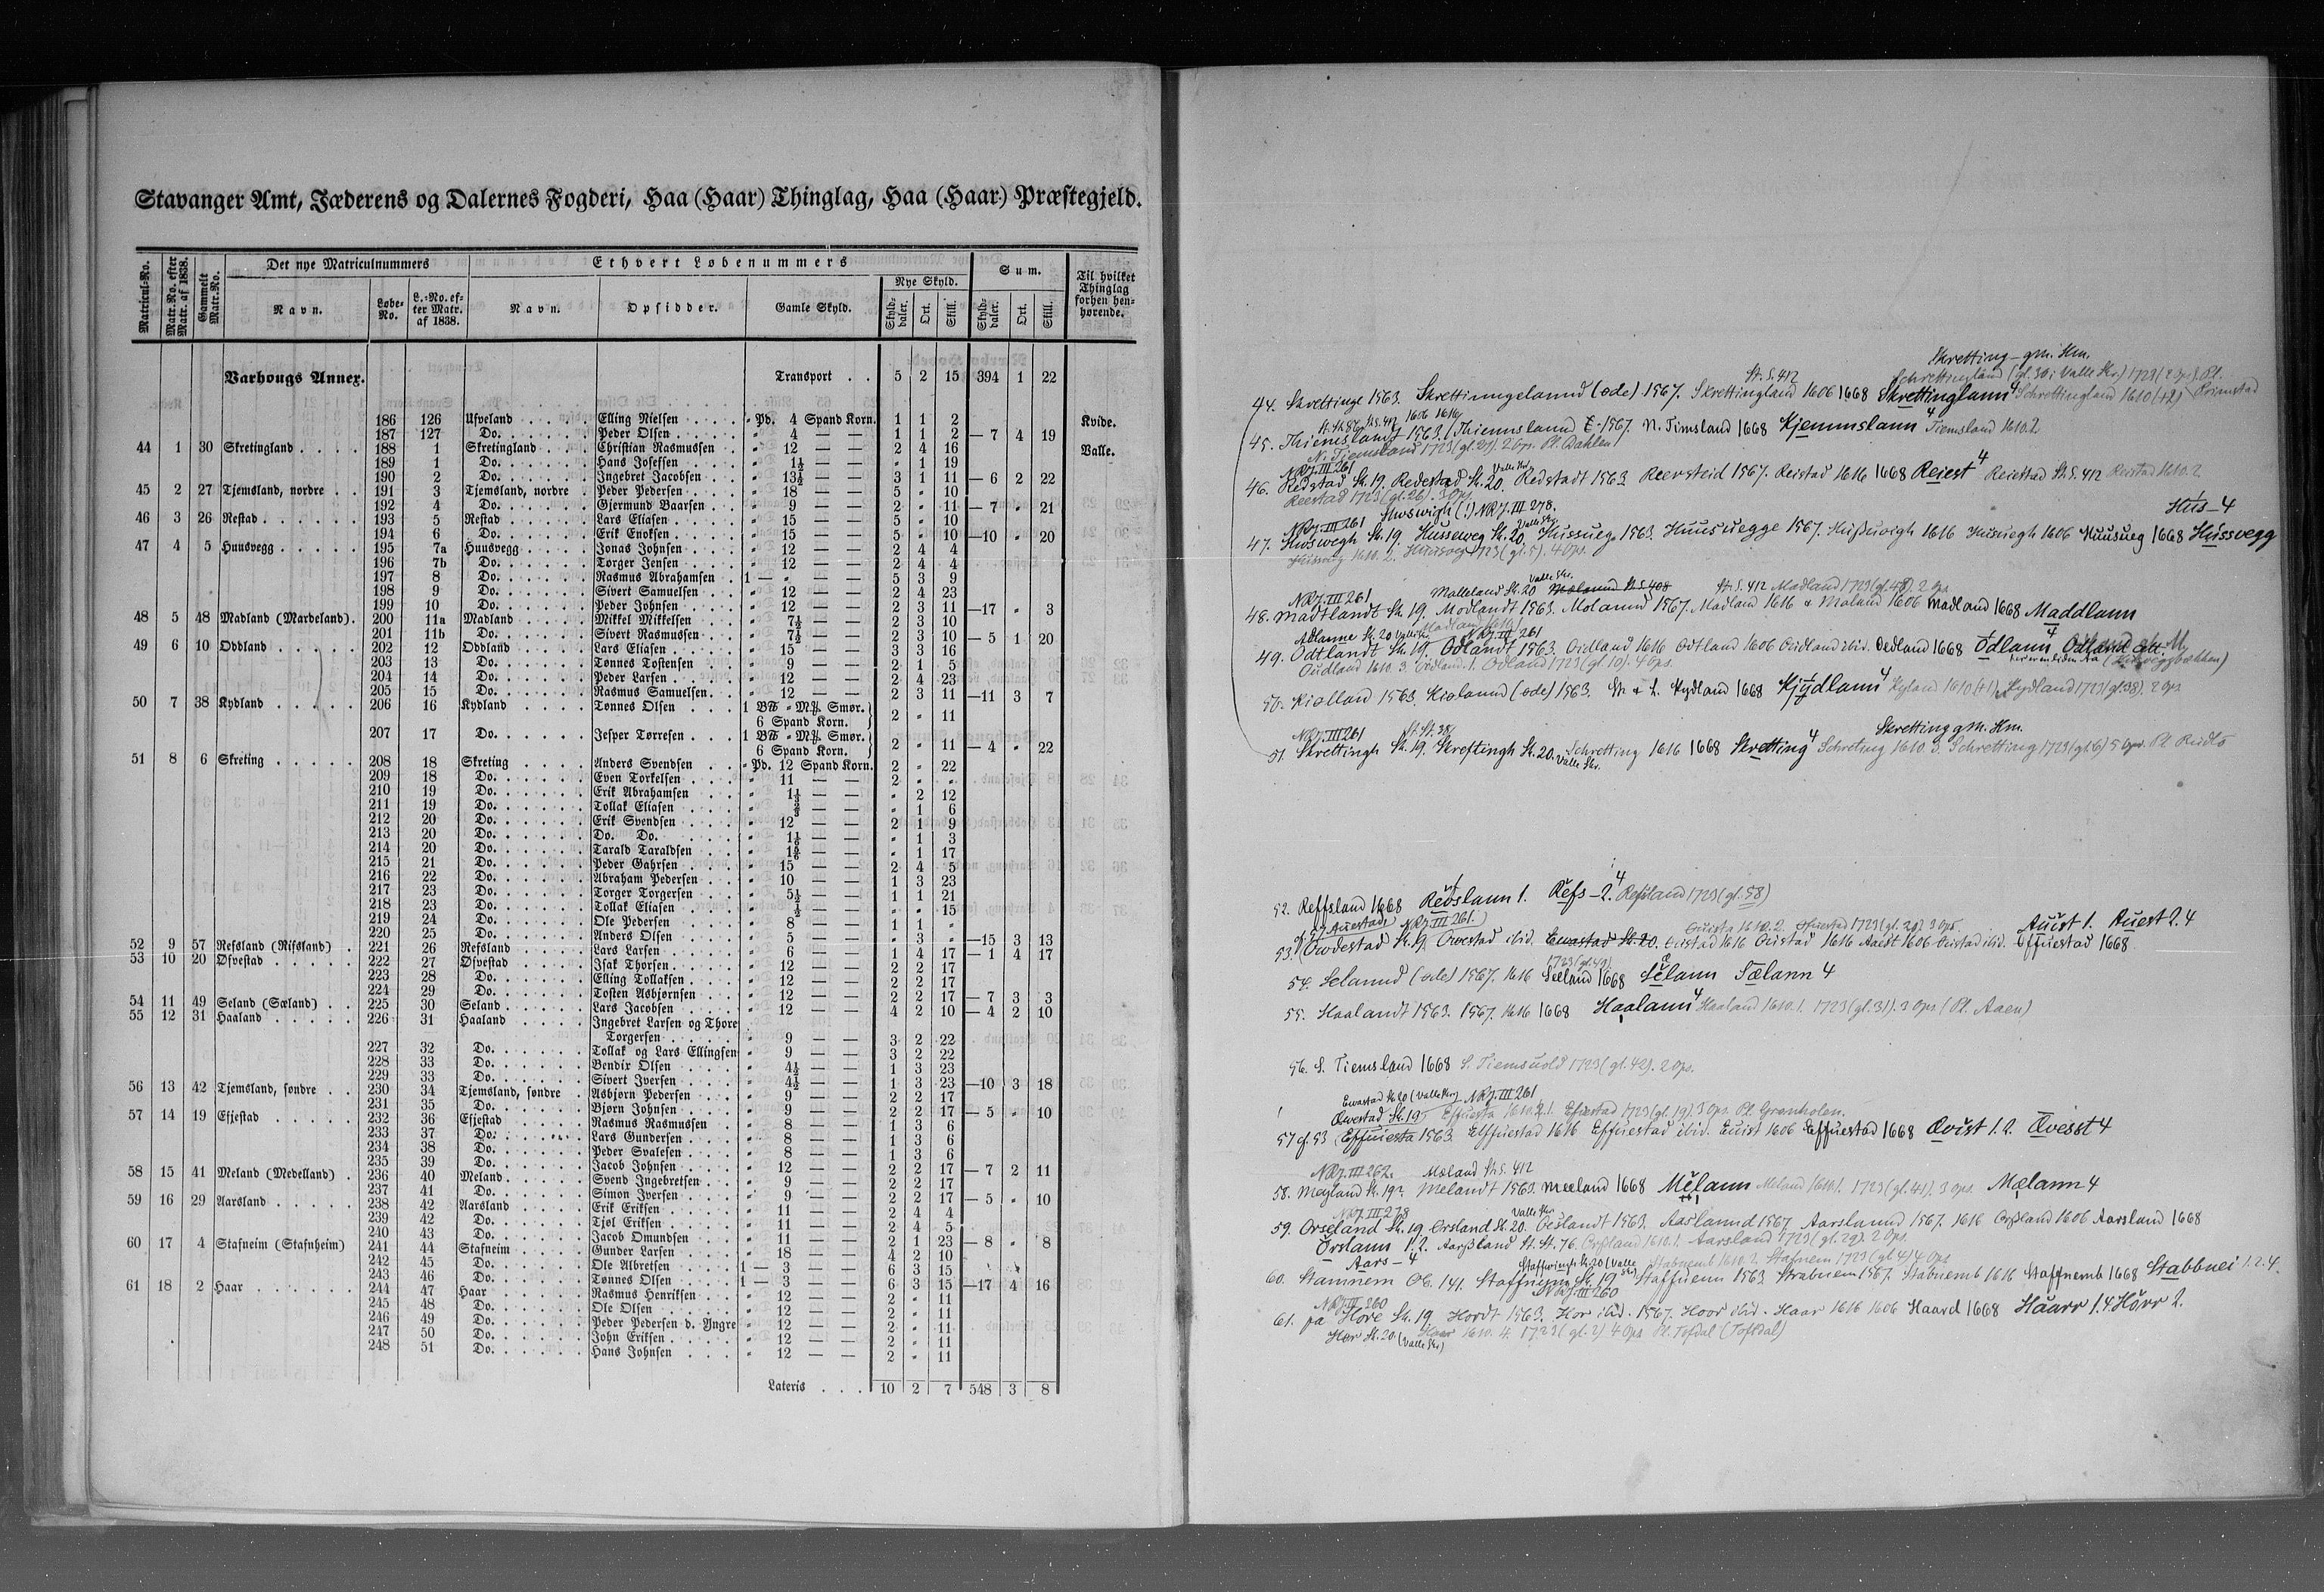 Stavanger Amt, Jæderens og Dalernes Fogderi, Haa (Haar) Thinglag, Haa (Haar) Præstegjeld.
Matricul-No. | Matr.-No. efter Matr. af 1838. | Gammelt Matr.-No. | Det nye Matriculnummers | Ethvert Løbenummers | Sum. | Til hvilket Thinglag forhen henhørende.
Navn. | Løbe-No. | L.-No. efter Matr. af 1838. | Navn. | Opsidder. | Gamle Skyld. | Nye Skyld. | Skylddaler. | Ort. | Skill. | Skylddaler. | Ort. | Skill.
Varhougs Annex. Transport . . 5 2 15 394 1 22
186 126 Ufveland Elling Nielsen " Pd. 4 Spand Korn. 1 1 2 Kvide.
187 127 Do. Peder Olsen " 4 — — 1 1 2 — 7 4 19
44 1 30 Skretingland 188 1 Skretingland Christian Rasmussen " 12 — — 2 4 16 Valle.
189 1 Do. Hans Josefsen " 1½ — — " 1 19
190 2 Do. Ingebret Jacobsen " 13½ — — 3 1 11 — 6 2 22
45 2 27 Tjemsland, nordre 191 3 Tjemsland, nordre Peder Pedersen " 18 — — 5 " 10
192 4 Do. Gjermund Baarsen " 9 — — 2 " 11 — 7 " 21
46 3 26 Restad 193 5 Restad Lars Eliasen " 15 — — 5 " 10
194 6 Do. Erik Enoksen " 15 — — 5 " 10 — 10 " 20
47 4 5 Huusvegg 195 7a Huusvegg Jonas Johnsen " 12 — — 2 4 4
196 7b Do. Torger Jensen " 12 — — 2 4 4
197 8 Do. Rasmus Abrahamsen 1 — " — — 5 3 9
198 9 Do. Sivert Samuelsen " 12 — — 2 4 23
199 10 Do. Peder Johnsen " 12 — — 2 3 11 — 17 " 3
48 5 48 Madland (Mardeland). 200 11a Madland Mikkel Mikkelsen " 7½ — — 2 3 10
201 11b Do. Sivert Rasmussen " 7½ — — 2 3 10 — 5 1 20
49 6 10 Oddland 202 12 Oddland Lars Eliasen " 15 — — 3 3 16
203 13 Do. Tønnes Tostensen " 9 — — 2 1 5
204 14 Do. Peder Larsen " 12 — — 2 4 23
205 15 Do. Rasmus Samuelsen " 12 — — 2 3 11 — 11 3 7
50 7 38 Kydland 206 16 Kydland Tønnes Olsen 1 Bpd " Mk. Smør. 6 Spand Korn. 2 " 11
207 17 Do. Jesper Tørresen 1 Bpd " Mk. Smør. 6 Spand Korn. 2 " 11 — 4 " 22
51 8 6 Skreting 208 18 Skreting Anders Svendsen " Pd. 12 Spand Korn. 2 " 22
209 18 Do. Even Torkelsen " 11 — — 2 " "
210 19 Do. Erik Abrahamsen " 1½ — — " 2 12
211 19 Do. Tollak Eliasen " — — " 1 6
212 20 Do. Erik Svendsen " 12 — — 2 1 9
213 20 Do. Do. Do. " — — " 1 3
214 20 Do. Tarald Taraldsen " — — " 1 17
215 21 Do. Peder Gahrsen " 15 — — 2 4 5
216 22 Do. Abraham Pedersen " 10 — — 1 3 23
217 23 Do. Torger Torgersen " 5½ — — 1 1 21
218 23 Do. Tollak Eliasen " ½ — — " " 15
219 24 Do. Ole Pedersen " 8 — — 1 1 "
220 25 Do. Anders Olsen " 5 — — " 3 " — 15 3 13
52 9 57 Refsland (Rifsland) 221 26 Refsland Lars Larsen " 6 — — 1 4 17 — 1 4 17
53 10 20 Øfvestad 222 27 Øfvestad Isak Thorsen " 12 — — 2 2 17
223 28 Do. Elling Tollaksen " 12 — — 2 2 17
224 29 Do. Tosten Asbjørnsen " 12 — — 2 2 17 — 7 3 3
54 11 49 Seland (Sæland) 225 30 Seland Lars Jacobsen " 12 — — 4 2 10 — 4 2 10
55 12 31 Haaland 226 31 Haaland Ingebret Larsen og Thore
Torgersen " 9 — — 3 2 22
227 32 Do. Tollak og Lars Ellingsen " 9 — — 3 2 22
228 33 Do. Bendix Olsen " 4½ — — 1 3 23
229 33 Do. Sivert Iversen " 4½ — — 1 3 23 — 10 3 18
56 13 42 Tjemsland, søndre 230 34 Tjemsland, søndre Asbjørn Pedersen " 9 — — 2 2 17
231 35 Do. Bjørn Johnsen " 9 — — 2 2 17 — 5 " 10
57 14 19 Efjestad 232 36 Efjestad Rasmus Rasmussen " 8 — — 1 3 6
233 37 Do. Lars Gundersen " 8 — — 1 3 6
234 38 Do. Peder Svalesen " 8 — — 1 3 6
235 39 Do. Jacob Johnsen " 12 — — 2 2 17 — 7 2 11
58 15 41 Meland (Medelland) 236 40 Meland Svend Ingebretsen " 9 — — 2 2 17
237 41 Do. Simon Iversen " 9 — — 2 2 17 — 5 " 10
59 16 29 Aarsland 238 42 Aarsland Erik Eriksen " 11 — — 2 4 4
239 42 Do. Tjøl Eriksen " 11 — — 2 4 5
240 43 Do. Jacob Omundsen " 11 — — 2 1 23 — 8 " 8
60 17 4 Stafneim (Stafnheim) 241 44 Stafneim Gunder Larsen " 18 — — 4 2 10
242 45 Do. Ole Albretsen 1 — 3 — — 6 3 15
243 46 Do. Tønnes Olsen 1 — 3 — — 6 3 15 — 17 4 16
61 18 2 Haar 244 47 Haar Rasmus Henriksen " 12 — — 2 " 11
245 48 Do. Ole Olsen " 12 — — 2 " 11
246 49 Do. Peder Pedersen d. Yngre " 12 — — 2 " 11
247 50 Do. John Eriksen " 12 — — 2 " 11
248 51 Do. Hans Johnsen " 12 — — 2 " 11
Lateris . . . 10 2 7 548 3 8
Skretting – gm. Km.
St. S. 412 Schrettingland (gl. 30 i Valle Skr.) 1723 (2 Ops). Pl.
44. Skrettinge 1563. Skrettinngelannd (øde) 1567. Skrettingland 1606 1668 Skrettinglann 4 Schrettingland 1610 (+2)
St. S. 412 1606 1616
45. Thiemslandt 1563. Thiemslannd 1567. N. Timsland 1668 Kjemmslann 4 Tiemsland 1610.2
N. Tiemsland 1723 (gl. 27). 2 Ops. Pl. Dahlen
NRJ. III 261 Valle Skr.
46. Redstad Sk. 19. Redestad Sk. 20. Redstadt 1563. Reersteid 1567. Reistad 1616 1668 Reiest 4 Reiestad St. S. 412 Reistad 1610.2
Reestad 1723 (gl. 26). 3 Ops.
NRJ. III 261 Huswigh (!) NRJ. III 278. Hus – 4
Valle Skr.
47. Huswegh Sk. 19 Husseweg Sk. 20. Hussueg 1563. Huusuegge 1567. Hußuigh 1616 Husuegh 1606 Huusueg 1668 Hussvegg
1610.2. Huusveg 1723 (gl. 5). 4 Ops.
NRJ. III 261 Malleland Sk. 20 Valle Skr. St. S. 412 Madland 1723 (gl. 48). 2 Ops
48. Madtlandt Sk. 19. Modlandt 1563. Molannd 1567. Madland 1616 & Maland 1606 Madland 1668 Maddlann
Sk. 20 Valle Skr. NRJ. III 261
49. Odtlandt Sk. 19. Odlandt 1563. Oidland 1616 Odtland 1606 Oudland ibid. Oedland 1668 Odlann 4
Oudland 1610.3. Odland 1723 (gl. 10). 4 Ops.
50. Kiølland 1563. Kiølannd (øde) 1563. Kydland 1668 Kjydlann 4 Kyland 1610 (+1) Kydland 1723 (gl. 38). 2 Ops
NRJ. III 261 Skretting gm. Km.
51. Skrettingh Sk. 19. Skreftingh Sk. 20. Valle Skr. Schretting 1616 1668 Skretting 4 Schreting 1610.3. Schretting 1723 (gl. 6) 5 Ops.
52. Reffsland 1668 Reøslann 1. Refs – 2. 4 Refsland 1723 (gl. 58)
Ouesta 1610.2. 1723 (gl. 20) 3 Ops. Auist 1. Auest 2. 4
53. Owdestad Sk. 19. Owestad ibid. Ewastad Sk. 20. Oustad 1616 1616 1606 ibid. Effuestad 1668
1723 (gl. 49)
54. Selannd (øde) 1567. 1616 Seeland 1668 Selann Sælann 4
55. Haalandt 1563. 1567. 1616 1668 Haalann 4 Haaland 1610.1. 1723 (gl. 31). 3 Ops (Pl. Aaen)
56. S. Tiemsland 1668 S. Tiemsuold 1723 (gl. 42). 2 Ops.
Ewastad Sk. 20 (Valle Skr.) NRJ. III 261
Øwestad Sk. 19 Effuesta 1610.2.1. Efuestad 1723 (gl. 19). 3 Ops. Pl. Granholen.
57 cf. 53 Effuiesta 1563. Elffuestad 1616 Effuestad ibid. Euist 1606 Effuestad 1668 Øvist 1.2. Øvesst 4
NRJ. III 262. Mæland St. S. 412
58. Meyland Sk. 19. Melandt 1563. Meeland 1668 Melann Meland 1610.1. 1723 (gl. 41). 3 Ops. Mælann 4
NRJ. III 278 Valle Skr.
59. Orseland Sk. 19 Orsland Sk. 20. 1563. Aarslannd 1567. 1616 Orsland 1606 Aarsland 1668
Orslann 1.2. Aarßland St. St. 76. 1610.1. Aarsland 1723 (gl. 29). 2 Ops.
Aars – 4 Stabnemb 1610.2. Stafnem 1723 (gl. 4) 4 Ops
60. Stamnem OB. 141. Sk. 19 Staffuenn 1563. Strabuem 1567. Stabnemb 1616 Staffnemb 1668 Stabbnei 1.2.4.
NRJ. III 260 NRJ. III 260
61. pa Hore Sk. 19. Hordt 1563. Hor ibid. 1567. Hoor ibid. Haar 1616 1606 Haard 1668 Haarr 1.4 Hårr 2.
Hor Sk. 20. (Valle Skr.) Haar 1610.4. 1723 (gl. 2) 4 Ops Pl. Tofdal (Toftdal)